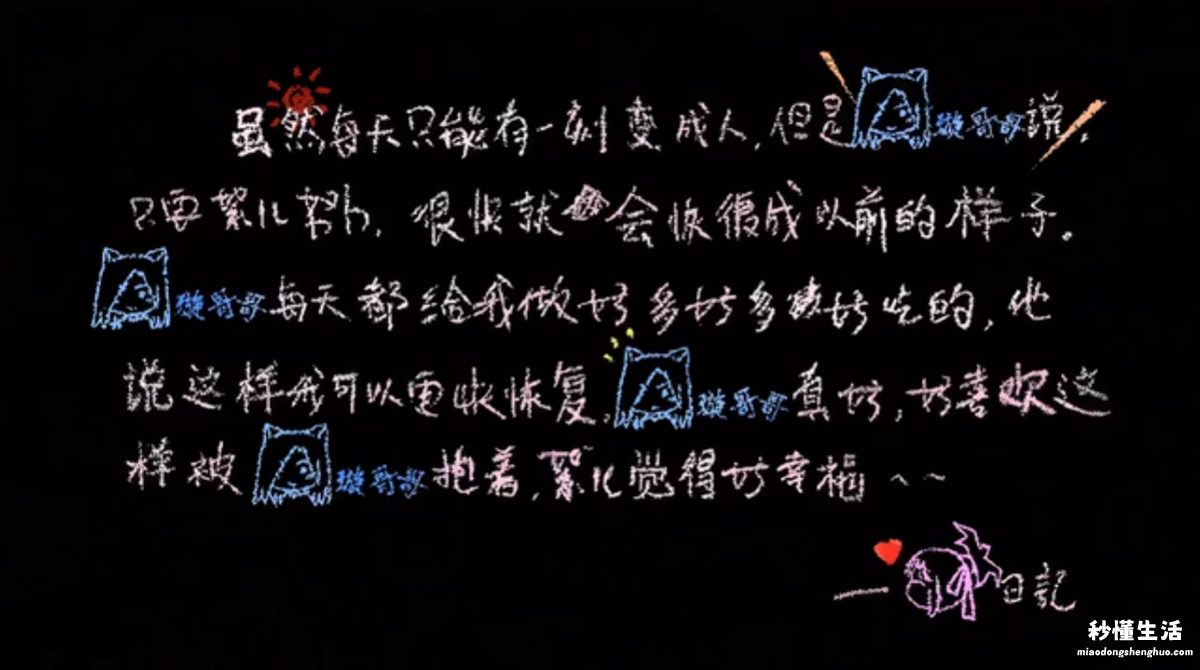 虽然每天只能有一刻变成人,但是璇哥哥说,
只要絮儿努力,很快就会恢復成以前的样子。
璇哥哥每天都给我做好多好多好吃的,他
说这样我可以更快恢复,璇哥哥真好,好喜欢这
样被璇哥哥抱着,絮儿觉得好幸福~~
—日記
秒懂生活
miaodongshenghuo.com